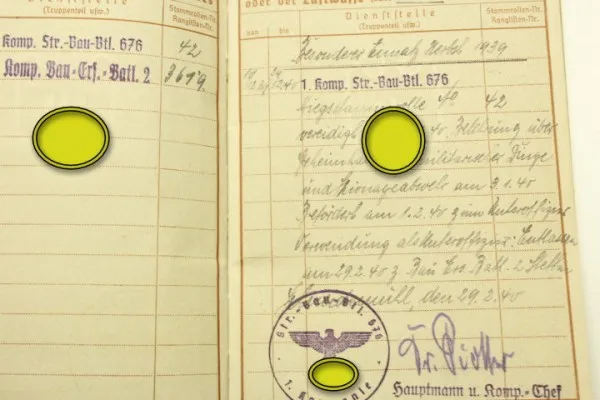 Dienststelle
(Truppenteil usw.)
Stammrollen-Nr.
Ranglisten-Nr.
Komp. Str.-Bau-Btl. 676 42
Komp. Bau-Ers.-Batl. 2 3619.
oder der Luftwaffe
Dienststelle
(Truppenteil usw.)
Stammrollen-Nr.
Ranglisten-Nr.
von bis
Besonderer Einsatz Herbst 1939
1. Komp. Str.-Bau-Btl. 676
Kriegsstammrolle No 42
vereidigt 40. Belehrung über
Geheimhaltung militärischer Dinge
und Spionageabwehr am 3.1.40
Befördert am 1.2.40 zum Unteroffizier
Verwendung als Unteroffizier: Entlassen
am 29.2.40 z. Bau Ers. Batl. 2 Stettin
den 29.2.40
Str.-Bau-Btl. 676
1. Kompanie
Hauptmann u. Komp.-Chef